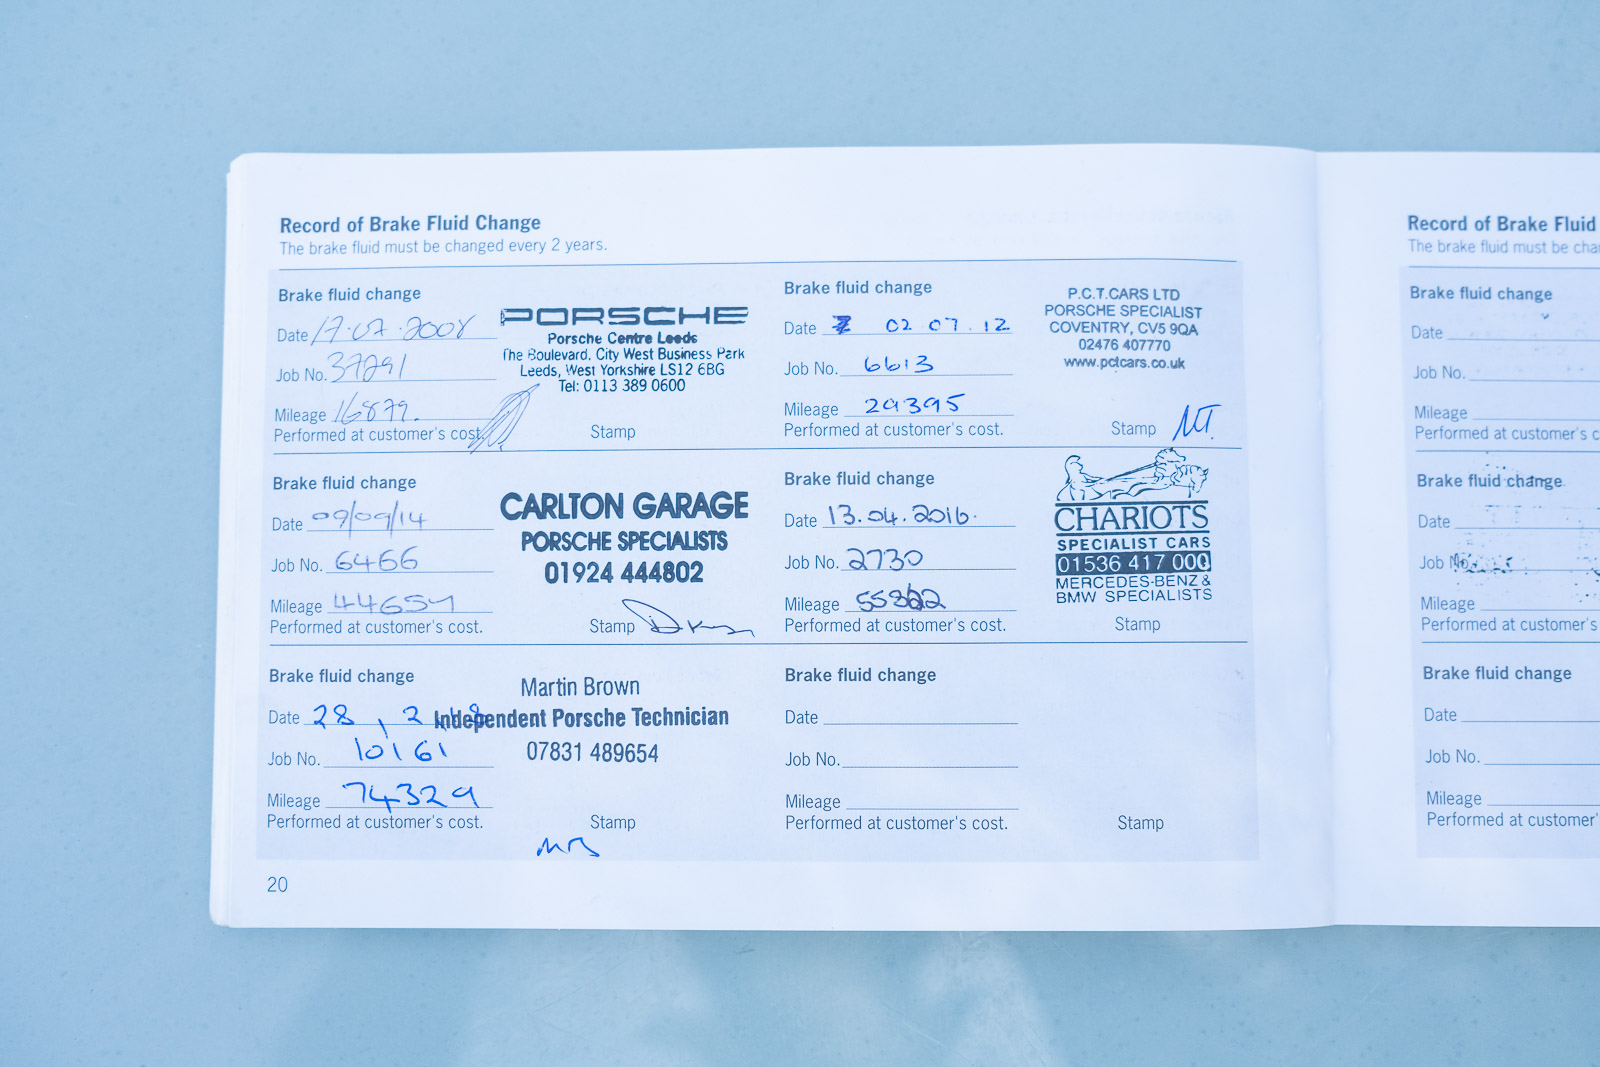 Record of Brake Fluid Change
The brake fluid must be changed every 2 years.
Brake fluid change
Date 17.07.2008
Job No. 37291
Mileage 16879.
Performed at customer's cost.
PORSCHE
Porsche Centre Leeds
The Boulevard, City West Business Park
Leeds, West Yorkshire LS12 6BG
Tel: 0113 389 0600
Stamp
Brake fluid change
Date 02 07.12
Job No. 6613
Mileage 29395
Performed at customer's cost.
P.C.T.CARS LTD
PORSCHE SPECIALIST
COVENTRY, CV5 9QA
02476 407770
www.pctcars.co.uk
Stamp
Brake fluid change
Date 09/09/14
Job No. 6466
Mileage 44654
Performed at customer's cost.
CARLTON GARAGE
PORSCHE SPECIALISTS
01924 444802
Stamp
Brake fluid change
Date 13.04.2016.
Job No. 2730
Mileage 55822
Performed at customer's cost.
CHARIOTS
SPECIALIST CARS
01536 417 000
MERCEDES-BENZ &
BMW SPECIALISTS
Stamp
Brake fluid change
Date 28, 2, 18
Job No. 10161
Mileage 74329
Performed at customer's cost.
Martin Brown
Independent Porsche Technician
07831 489654
Stamp
MB
Brake fluid change
Date
Job No.
Mileage
Performed at customer's cost.
Stamp
20
Record of Brake Fluid
The brake fluid must be cha
Brake fluid change
Date
Job No.
Mileage
Performed at customer's c
Brake fluid change
Date
Job No.
Mileage
Performed at customer's
Brake fluid change
Date
Job No.
Mileage
Performed at customer'